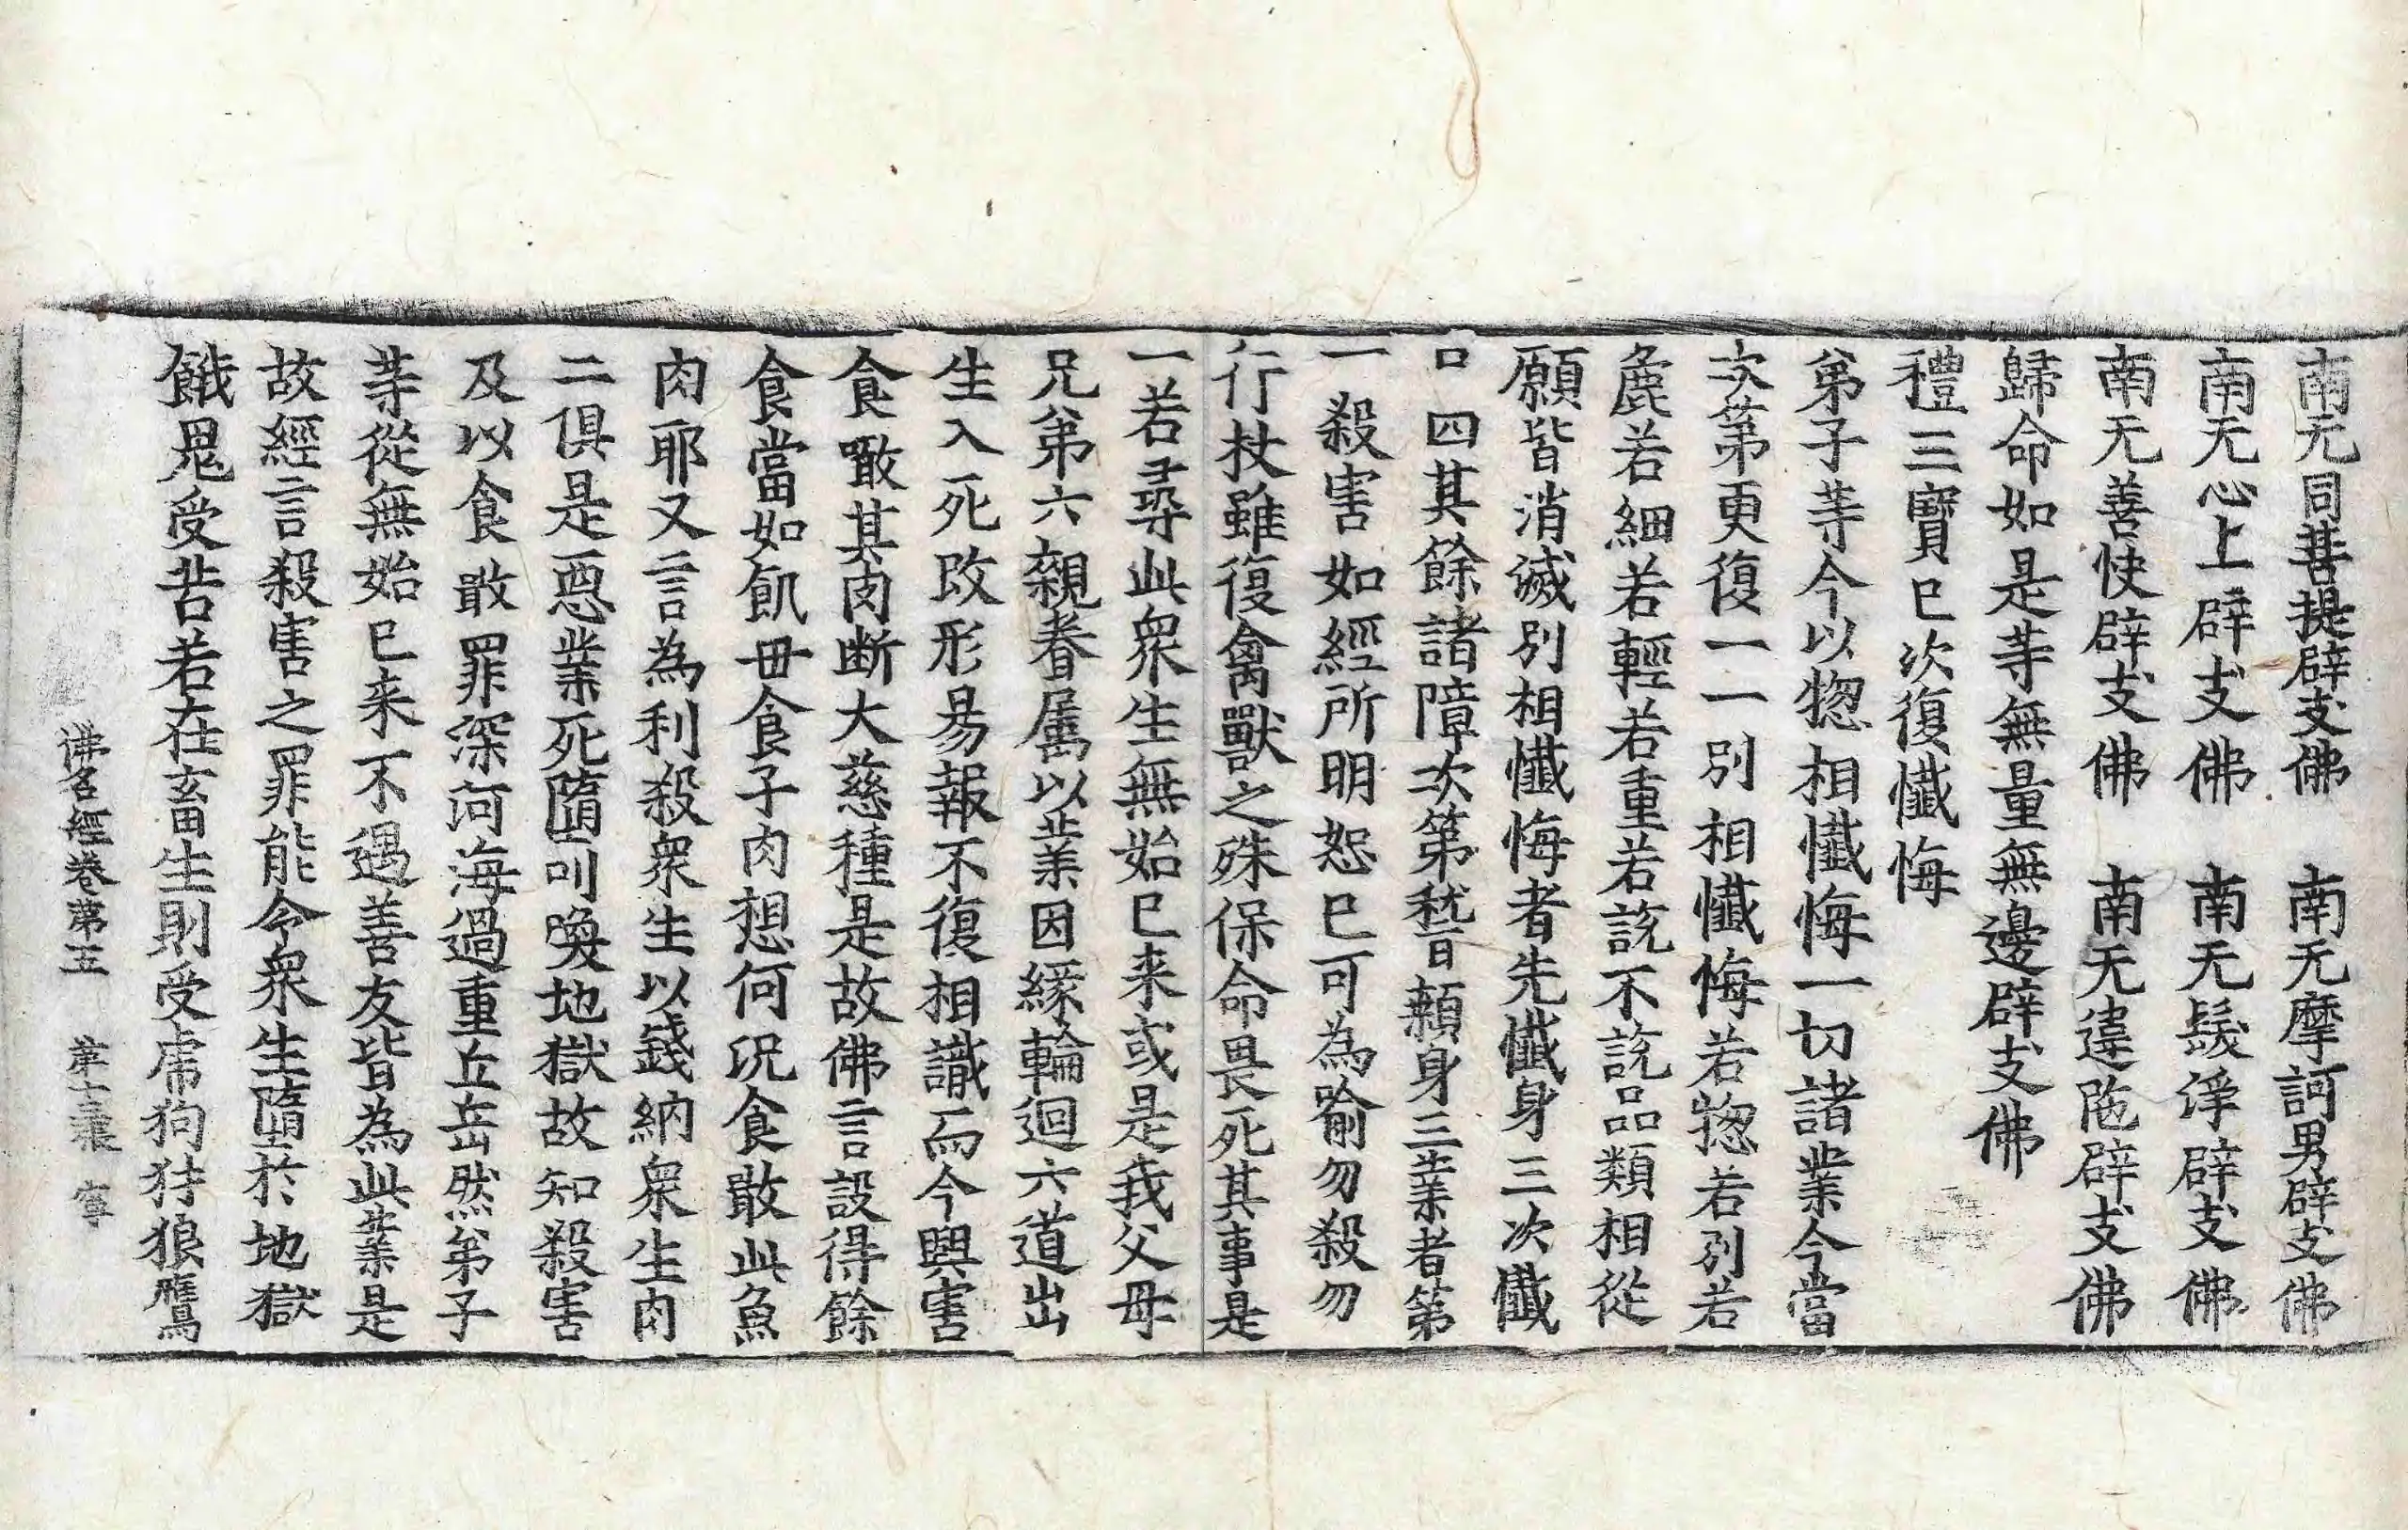 南无同菩提辟支佛　南无摩訶男辟支佛
南无心上辟支佛　南无髮淨辟支佛
南无善快辟支佛　南无違陁辟支佛
歸命如是䓁無量無邊辟支佛
禮三寶已次復懺悔
弟子䓁今以惣相懺悔一切諸業今當
次第更復一一別相懺悔若惣若別若
麁若細若輕若重若說不說品類相從
願皆消滅別相懺悔者先懺身三次懺
口四其餘諸障次第嵇顙身三業者第
一殺害如經所明恕已可為喻勿殺勿
行杖雖復禽獸之殊保命畏死其事是
一若尋此衆生無始已来或是我父母
兄弟六親眷属以業因緣輪迴六道出
生入死改形易報不復相識而今興害
食噉其肉断大慈種是故佛言設得餘
食當如飢世食子肉想何況食噉此魚
肉耶又言為利殺衆生以錢納衆生肉
二俱是惡業死墮叫喚地獄故知殺害
及以食噉罪深河海過重丘岳然弟子
䓁從無始已来不遇善友皆為此業是
故經言殺害之罪能令衆生墮於地獄
餓鬼受苦若在畜生則受虎狗犲狼鷹
佛名經卷第五　第十三張